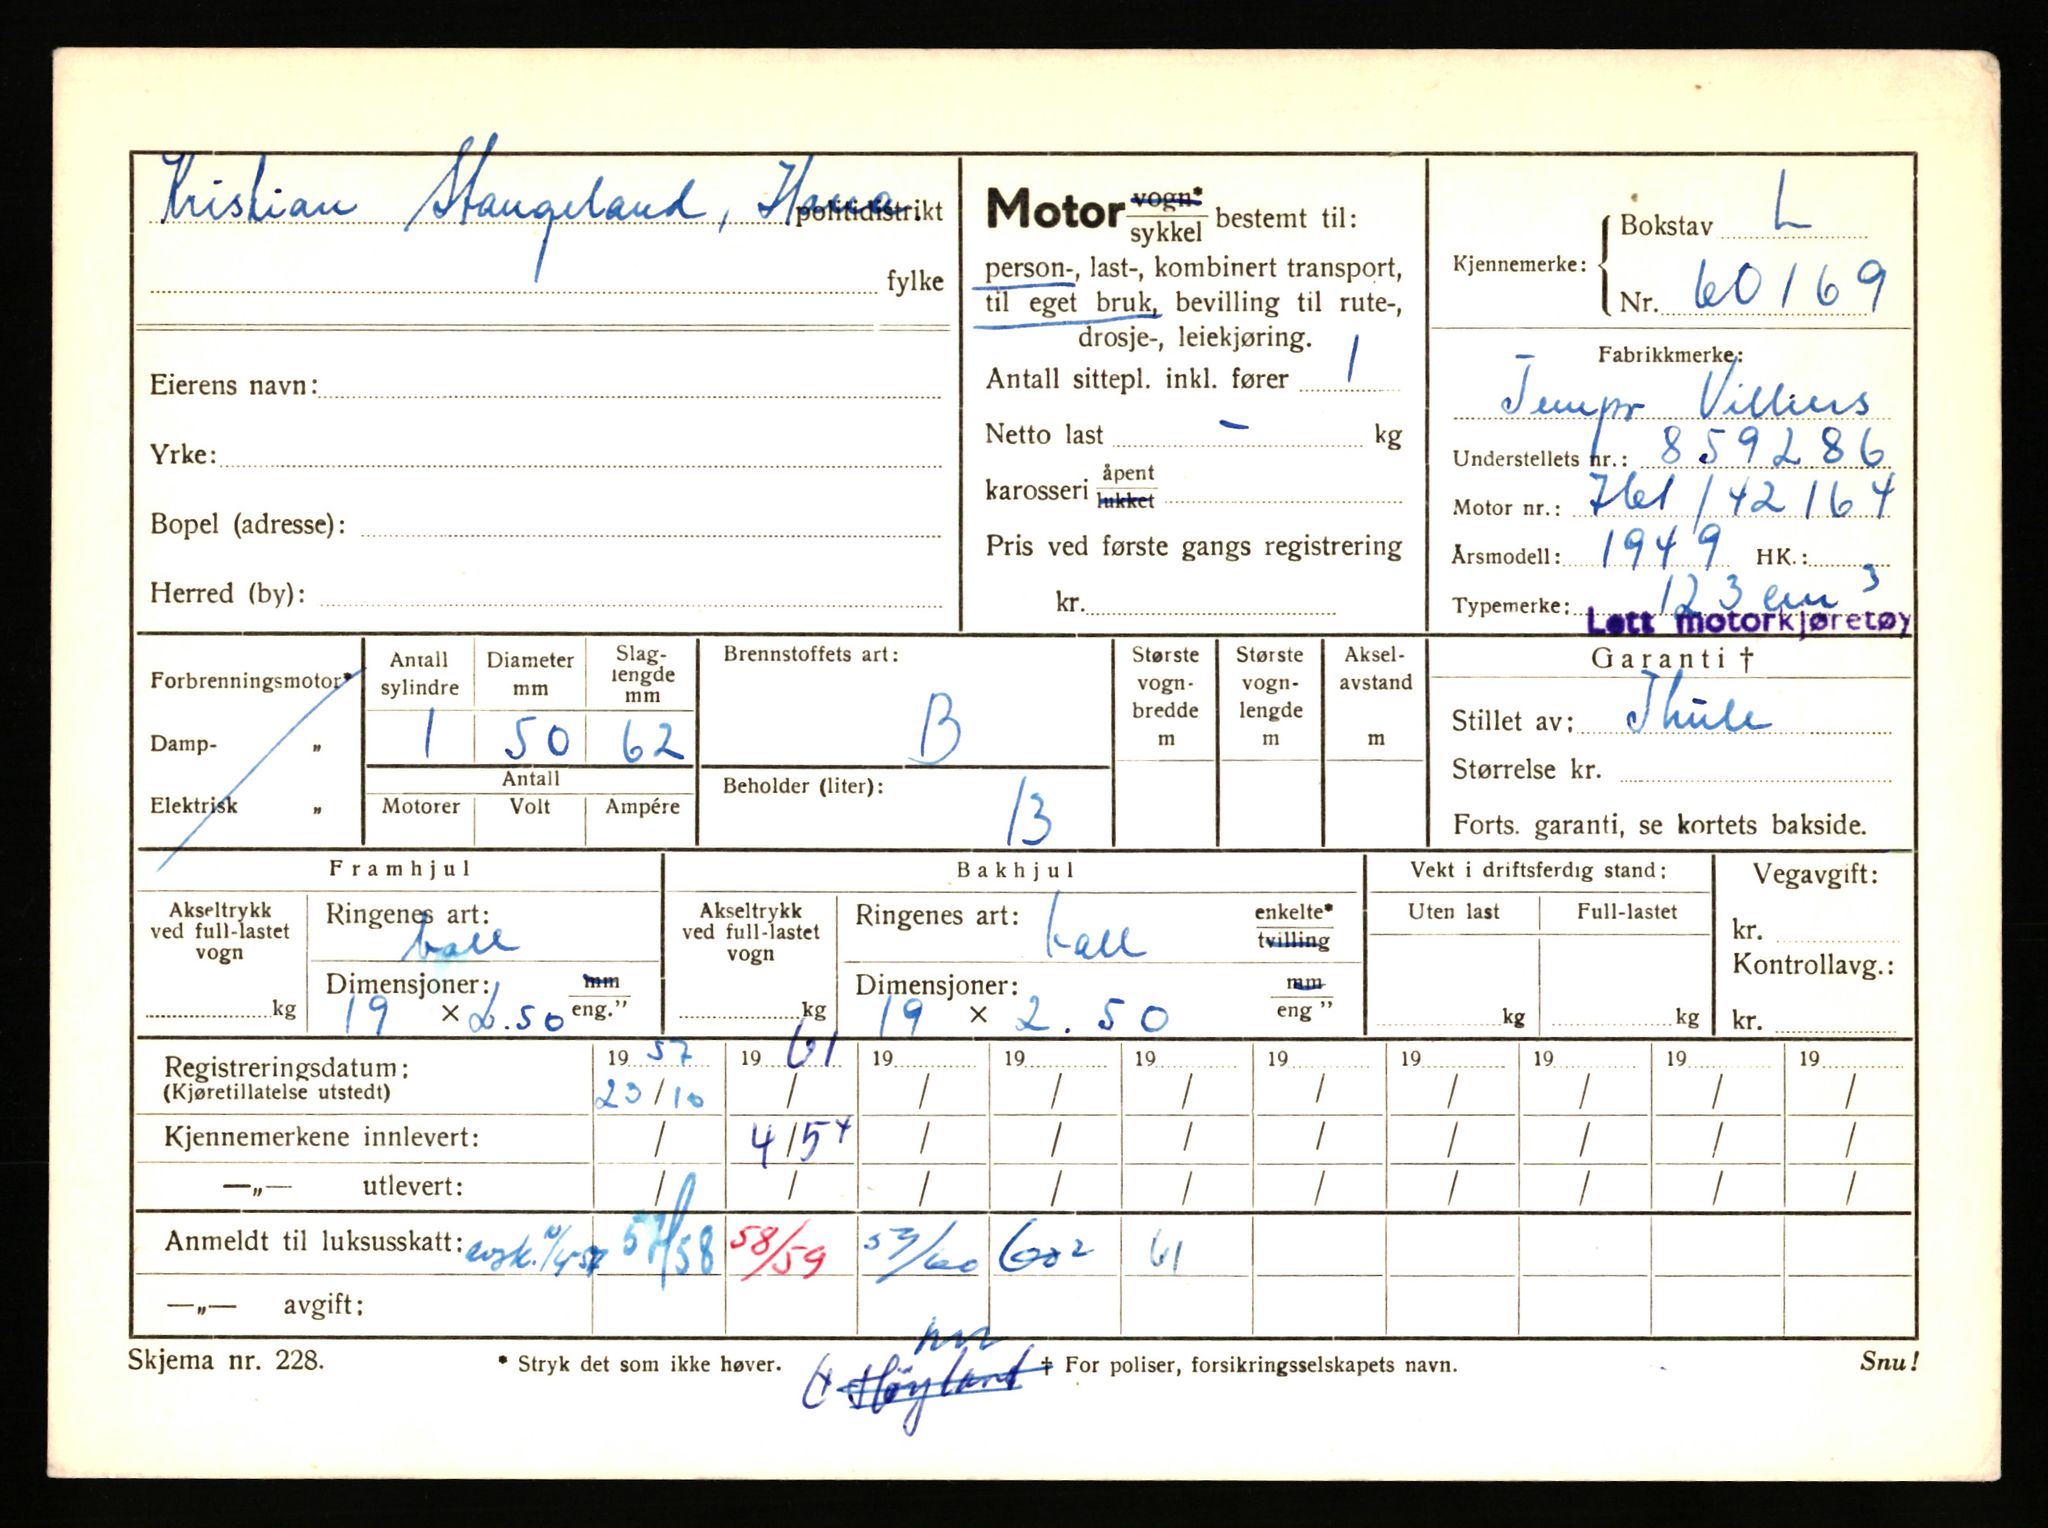 Kristian Stangeland, Hana politidistrikt
fylke
Eierens navn:
Yrke:
Bopel (adresse):
Herred (by):
Motor vogn* / sykkel bestemt til:
person-, last-, kombinert transport,
til eget bruk, bevilling til rute-,
drosje-, leiekjøring.
Antall sittepl. inkl. fører 1
Netto last - kg
karosseri åpent / lukket
Pris ved første gangs registrering
kr.
Kjennemerke: Bokstav L
Nr. 60169
Fabrikkmerke:
Tempo Villiers
Understellets nr.: 859286
Motor nr.: 761/42164
Årsmodell: 1949 HK.:
Typemerke: 123 cm³
Lett motorkjøretøy
Forbrenningsmotor*
Damp- „
Elektrisk „
Antall sylindre Diameter mm Slaglengde mm
1 50 62
Antall
Motorer Volt Ampére
Brennstoffets art:
B
Beholder (liter):
13
Største vogn-bredde m
Største vogn-lengde m
Aksel-avstand m
Garanti †
Stillet av: Thule
Størrelse kr.
Forts. garanti, se kortets bakside.
Framhjul
Akseltrykk ved full-lastet vogn
kg
Ringenes art:
ball
Dimensjoner: mm / eng.”
19 × 2.50
Bakhjul
Akseltrykk ved full-lastet vogn
kg
Ringenes art: ball enkelte* / tvilling
Dimensjoner: mm / eng ”
19 × 2.50
Vekt i driftsferdig stand:
Uten last Full-lastet
kg kg
Vegavgift:
kr.
Kontrollavg.:
kr.
Registreringsdatum: 19 57 19 61 19 19 19 19 19 19 19 19
(Kjøretillatelse utstedt) 23/10 / / / / / / / / /
Kjennemerkene innlevert: / 4/5 / / / / / / / /
—„— utlevert: / / / / / / / / / /
Anmeldt til luksusskatt: 57/58 58/59 59/60 61
—„— avgift:
Skjema nr. 228.
* Stryk det som ikke høver.
† For poliser, forsikringsselskapets navn.
Snu!
Høyland